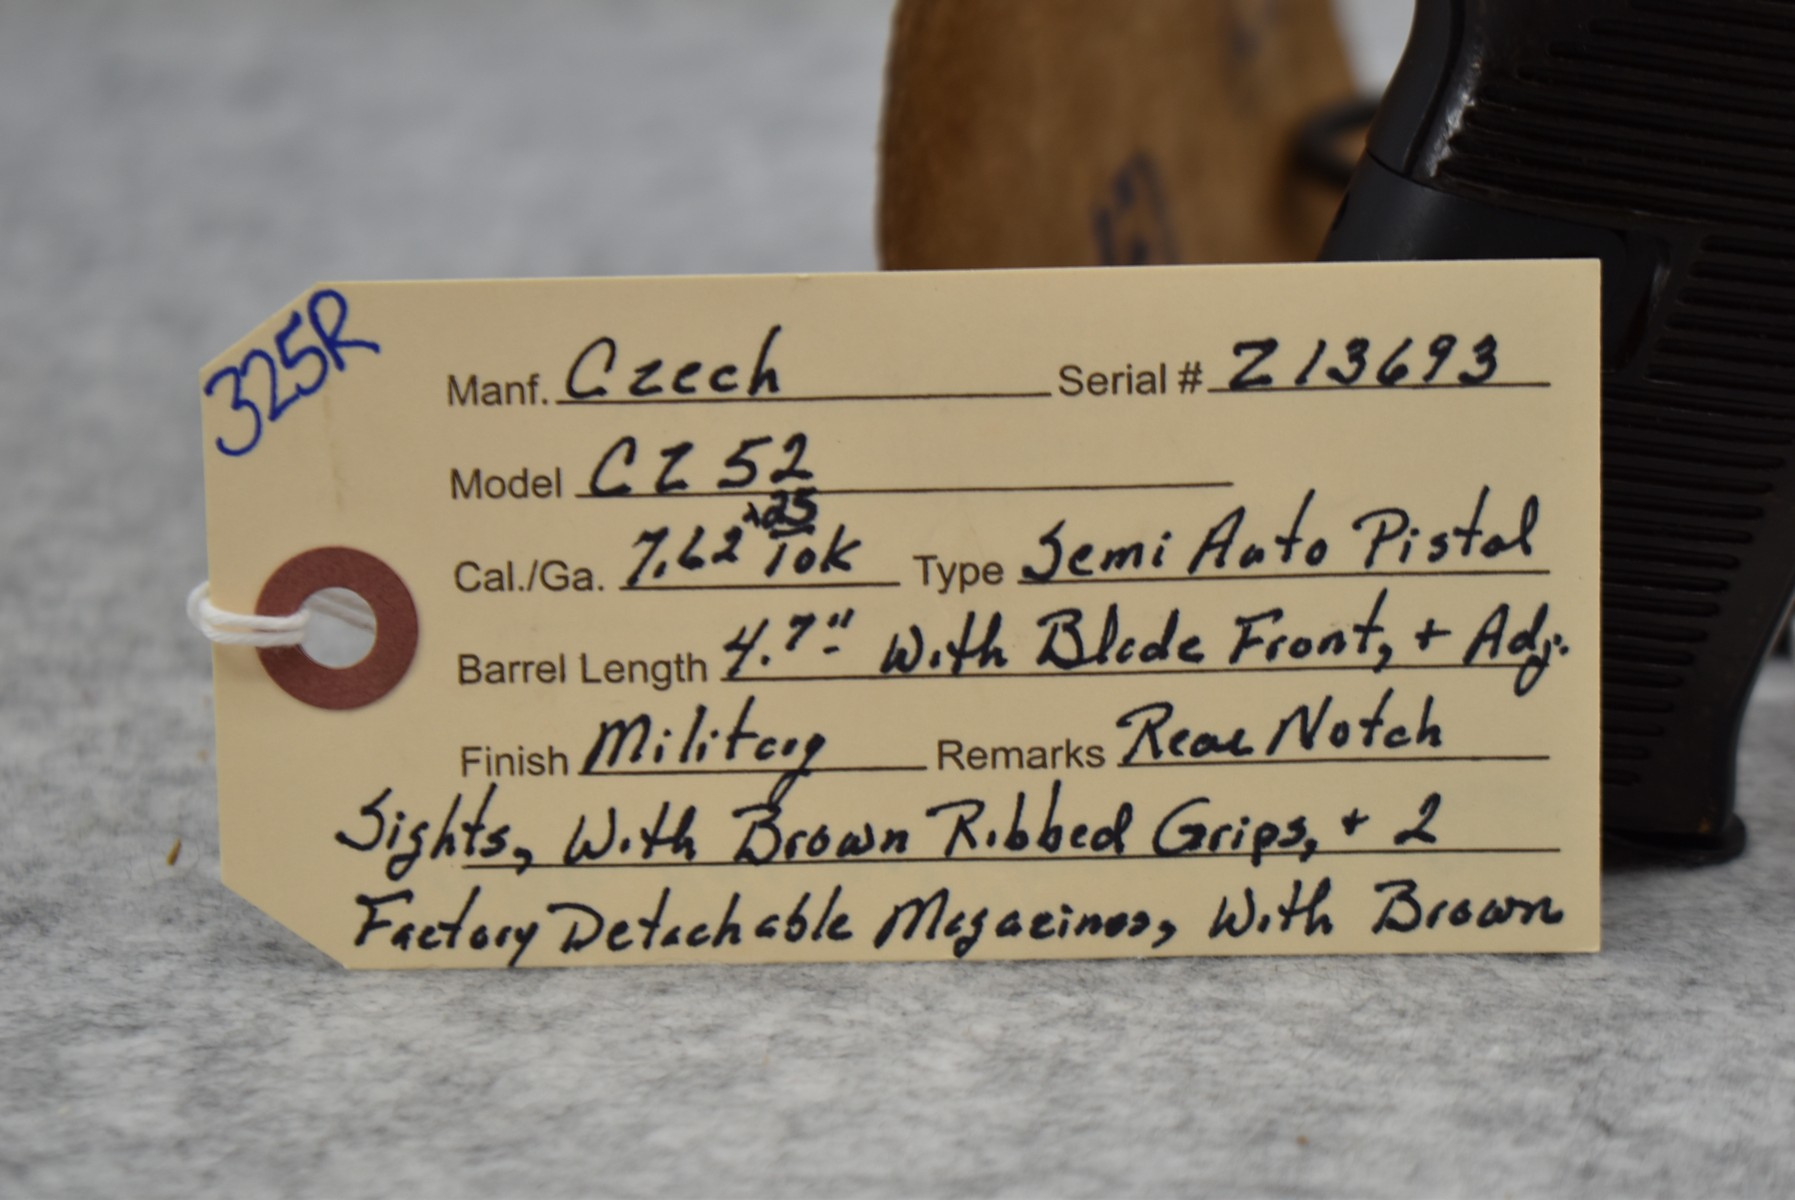 325R
Manf. Czech Serial # Z13693
Model CZ 52
Cal./Ga. 7.62x25 Tok Type Semi Auto Pistol
Barrel Length 4.7" With Blade Front, + Adj.
Finish Military Remarks Rear Notch
Sights, With Brown Ribbed Grips, + 2
Factory Detachable Magazines, With Brown